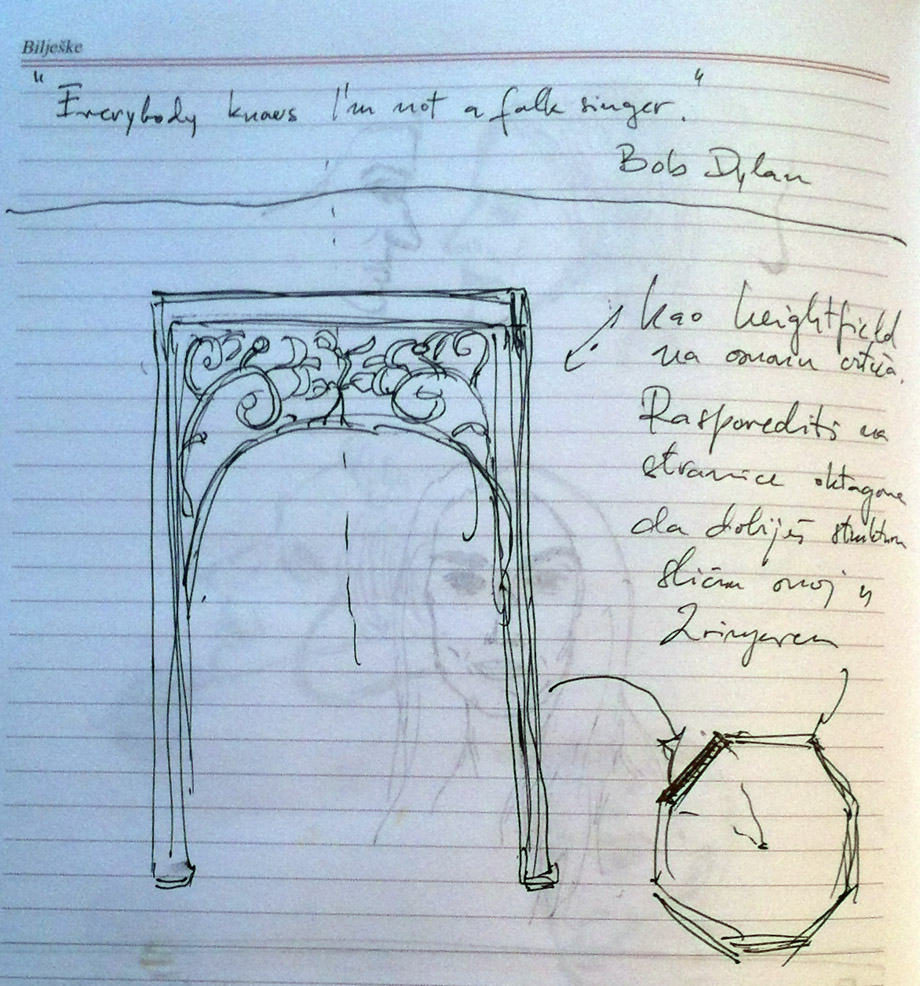 Bilješke
"Everybody knows I'm not a folk singer."
Bob Dylan
kao heightfield
na osnovu crteža.
Rasporediti na
stranice oktagona
da dobiješ strukturu
sličnu onoj u
Zrinjevcu